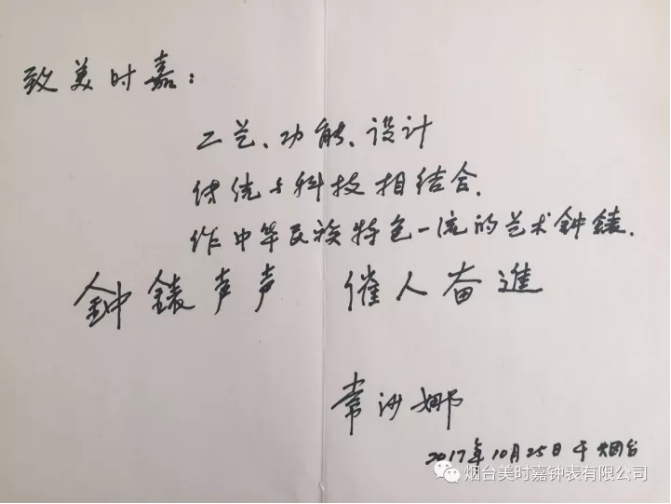 致美时嘉：
工艺、功能、设计
传统与科技相结合.
作中华民族特色一流的艺术钟錶.
鈡錶声声 催人奋進
常沙娜
2017年10月25日于烟台
烟台美时嘉钟表有限公司